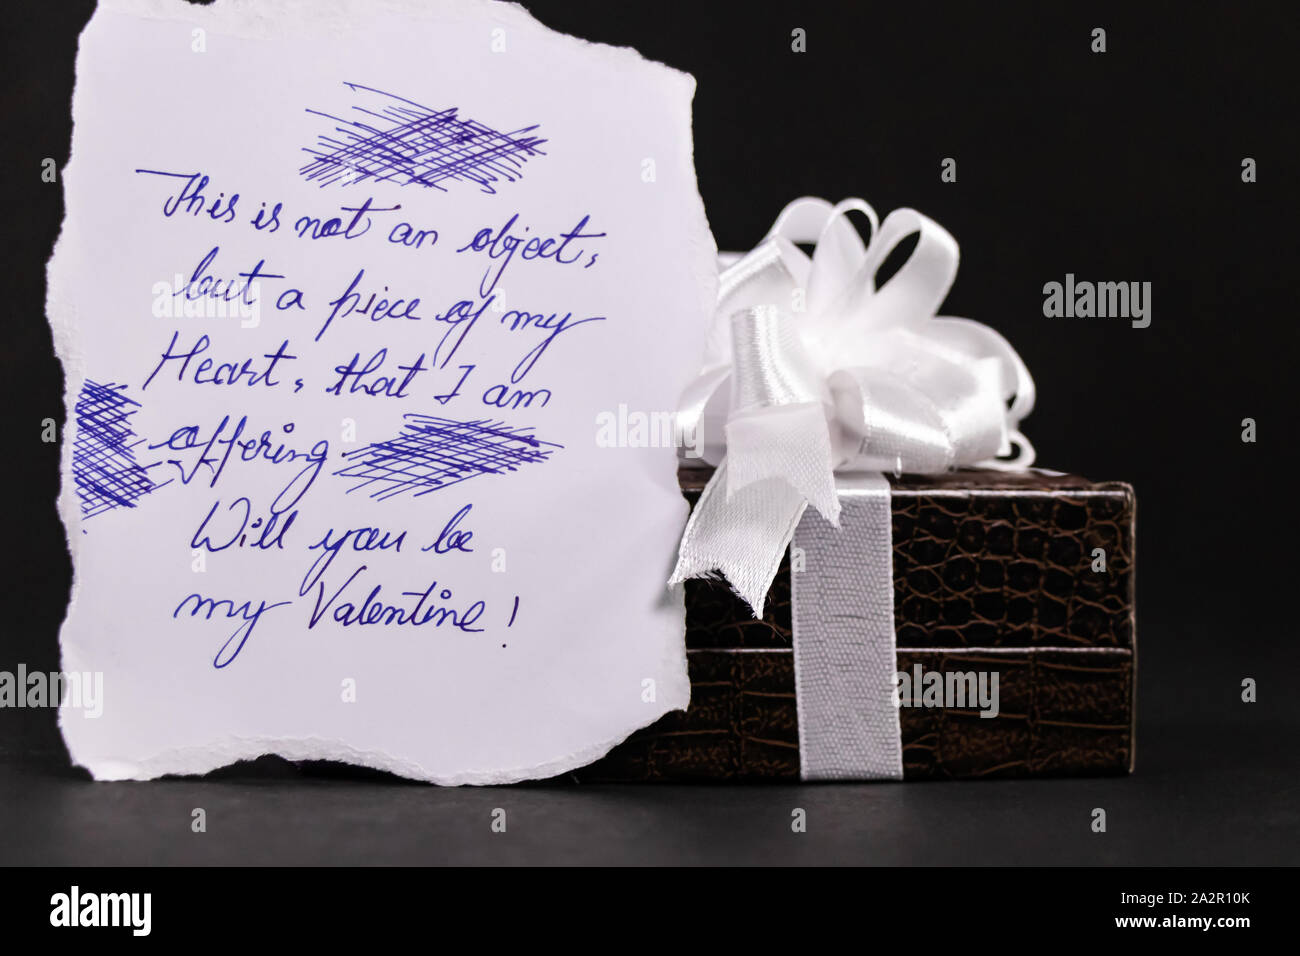 This is not an object,
but a piece of my
Heart, that I am
offering
Will you be
my Valentine!
a
alamy
alamy
Image ID: 2A2R10K
www.alamy.com